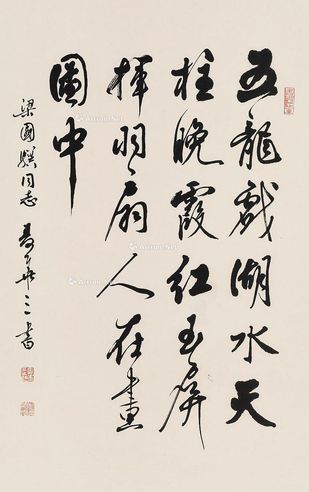 五龍戲湖水天
柱晚霞紅玉屏
揮羽扇人在畫
圖中
梁國
同志
三書